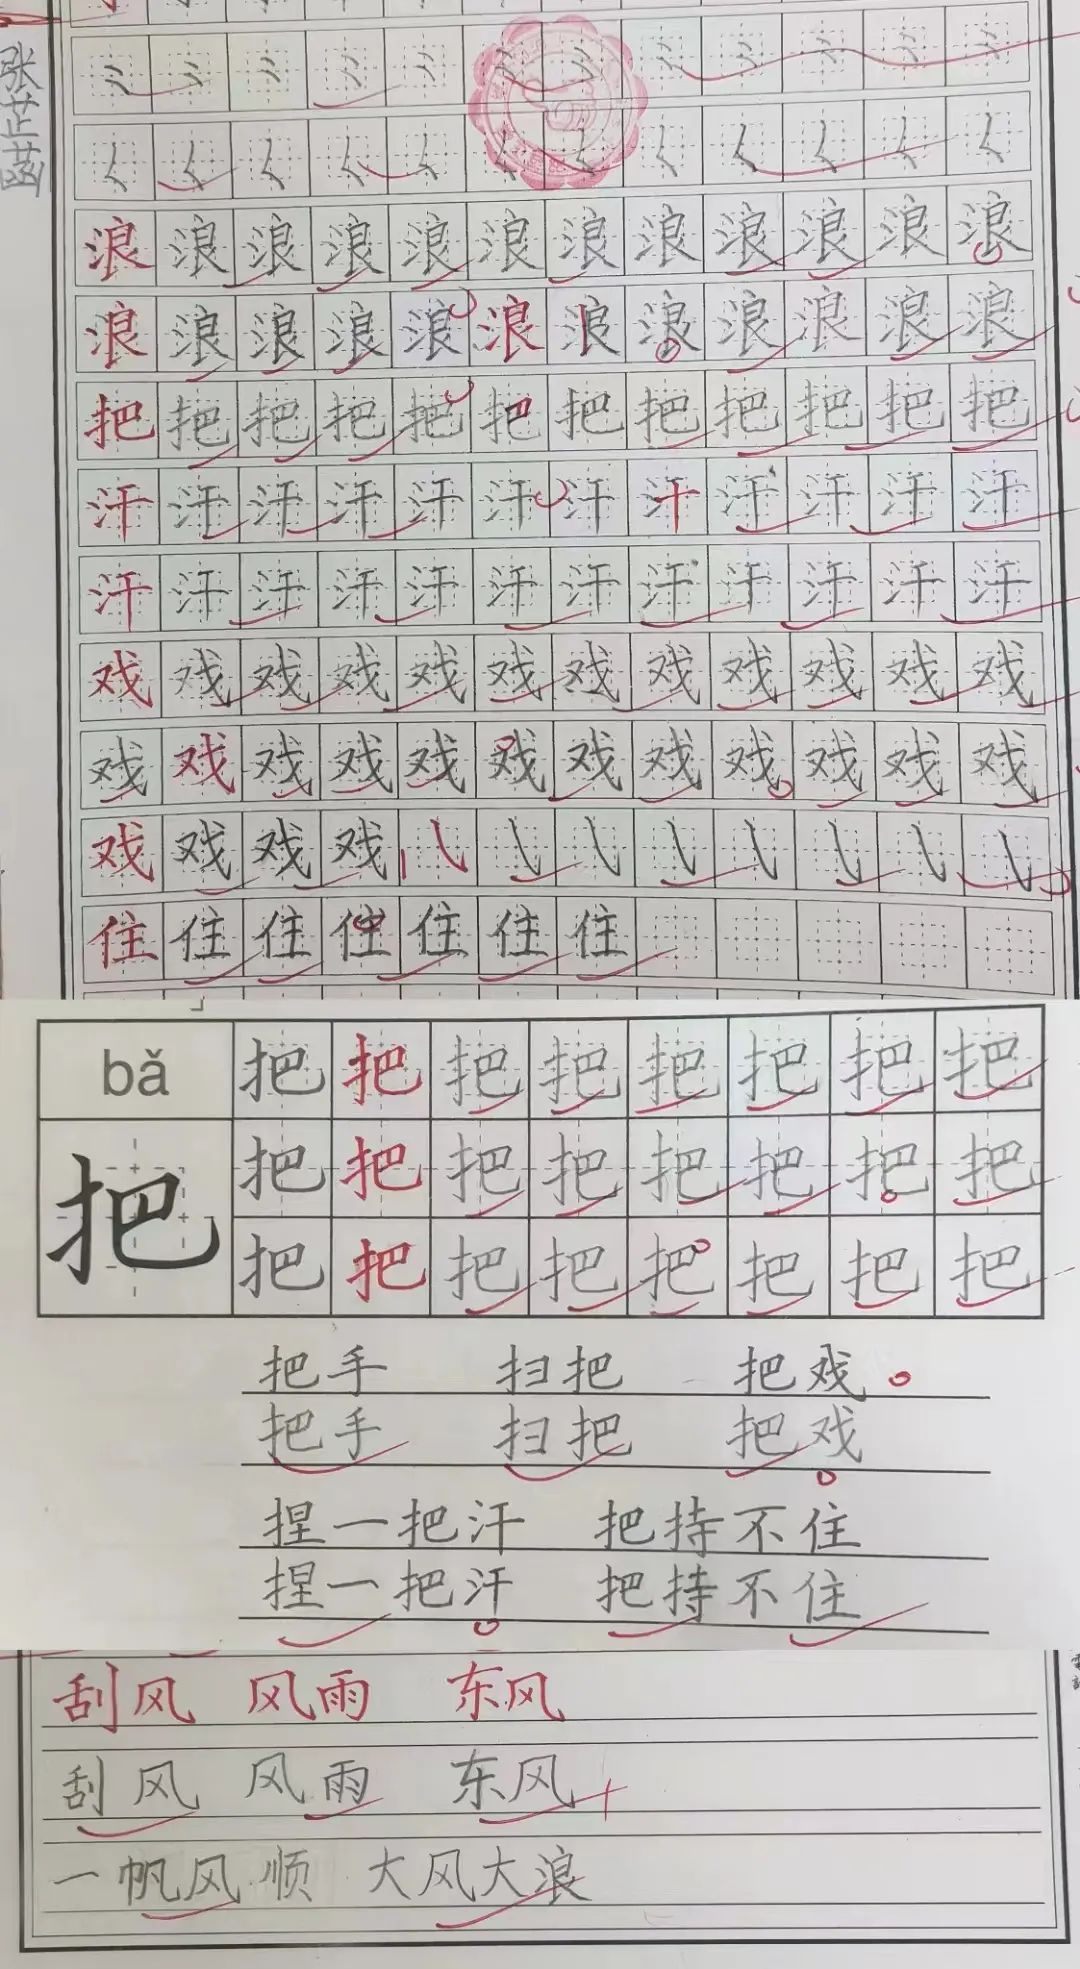 浪浪浪浪浪浪浪浪浪浪浪浪
浪浪浪浪浪浪浪浪浪浪浪浪
把把把把把把把把把把把把
汗汗汗汗汗汗汗汗汗汗汗汗
汗汗汗汗汗汗汗汗汗汗汗汗
戏戏戏戏戏戏戏戏戏戏戏戏
戏戏戏戏戏戏戏戏戏戏戏戏
戏戏戏戏
住住住住住住住
bǎ 把把把把把把把把
把 把把把把把把把把
把把把把把把把把
把手 扫把 把戏
把手 扫把 把戏
捏一把汗 把持不住
捏一把汗 把持不住
刮风 风雨 东风
刮风 风雨 东风
一帆风顺 大风大浪